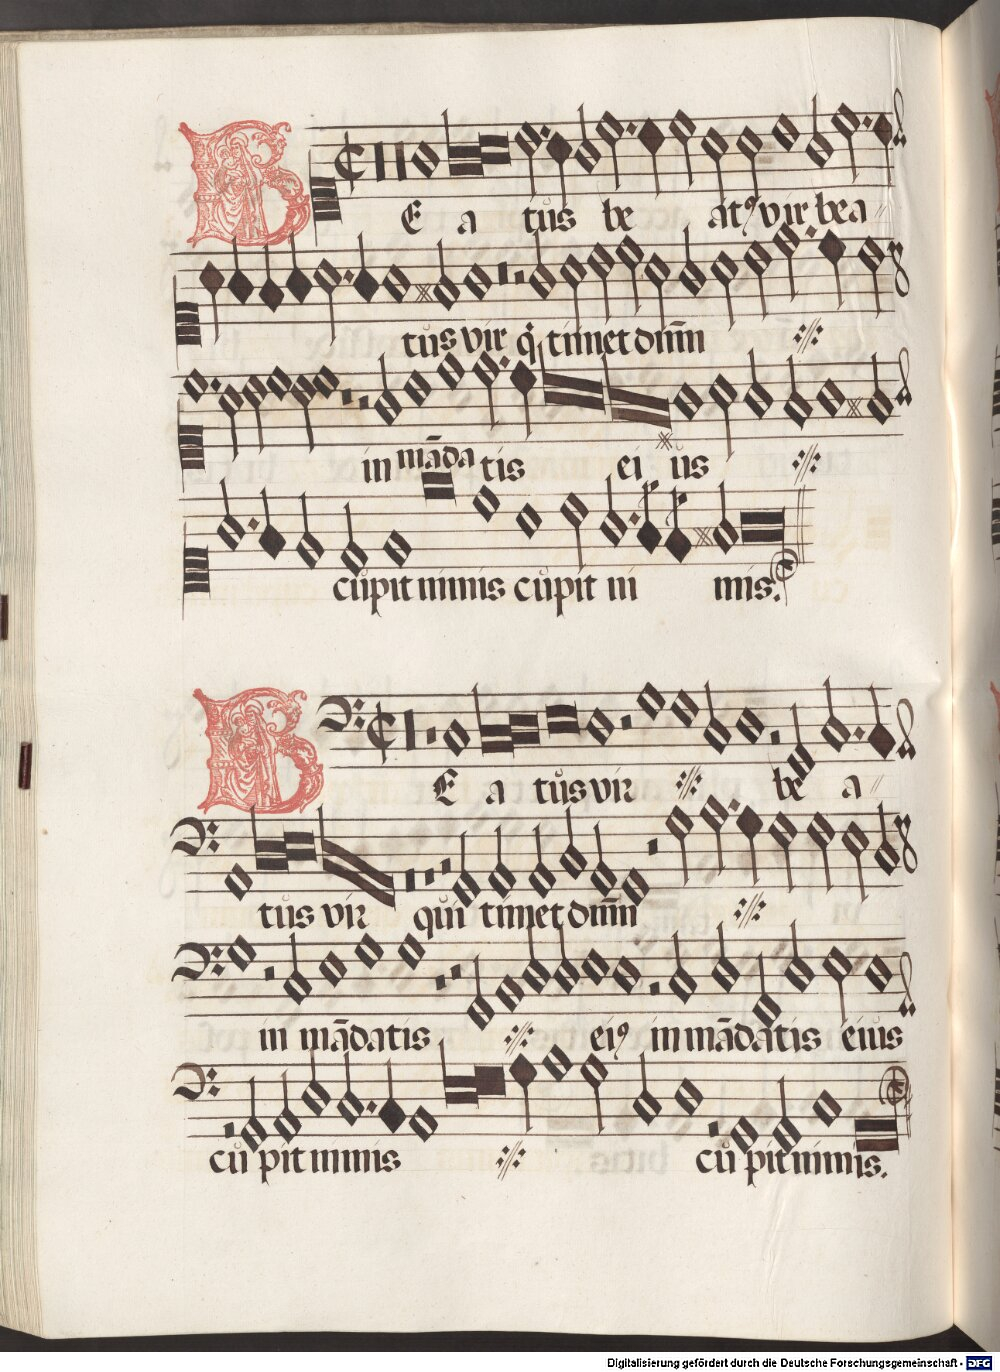 BE a tus be at⁹ vir bea
tus vir q̇ timet dn̄m
in mādatis ei us
cūpit nimis cūpit ni mis.
BE a tus vir be a
tus vir qui timet dn̄m
in mādatis ei⁹ in mādatis eius
cū pit nimis cū pit nimis.
Digitalisierung gefördert durch die Deutsche Forschungsgemeinschaft - DFG